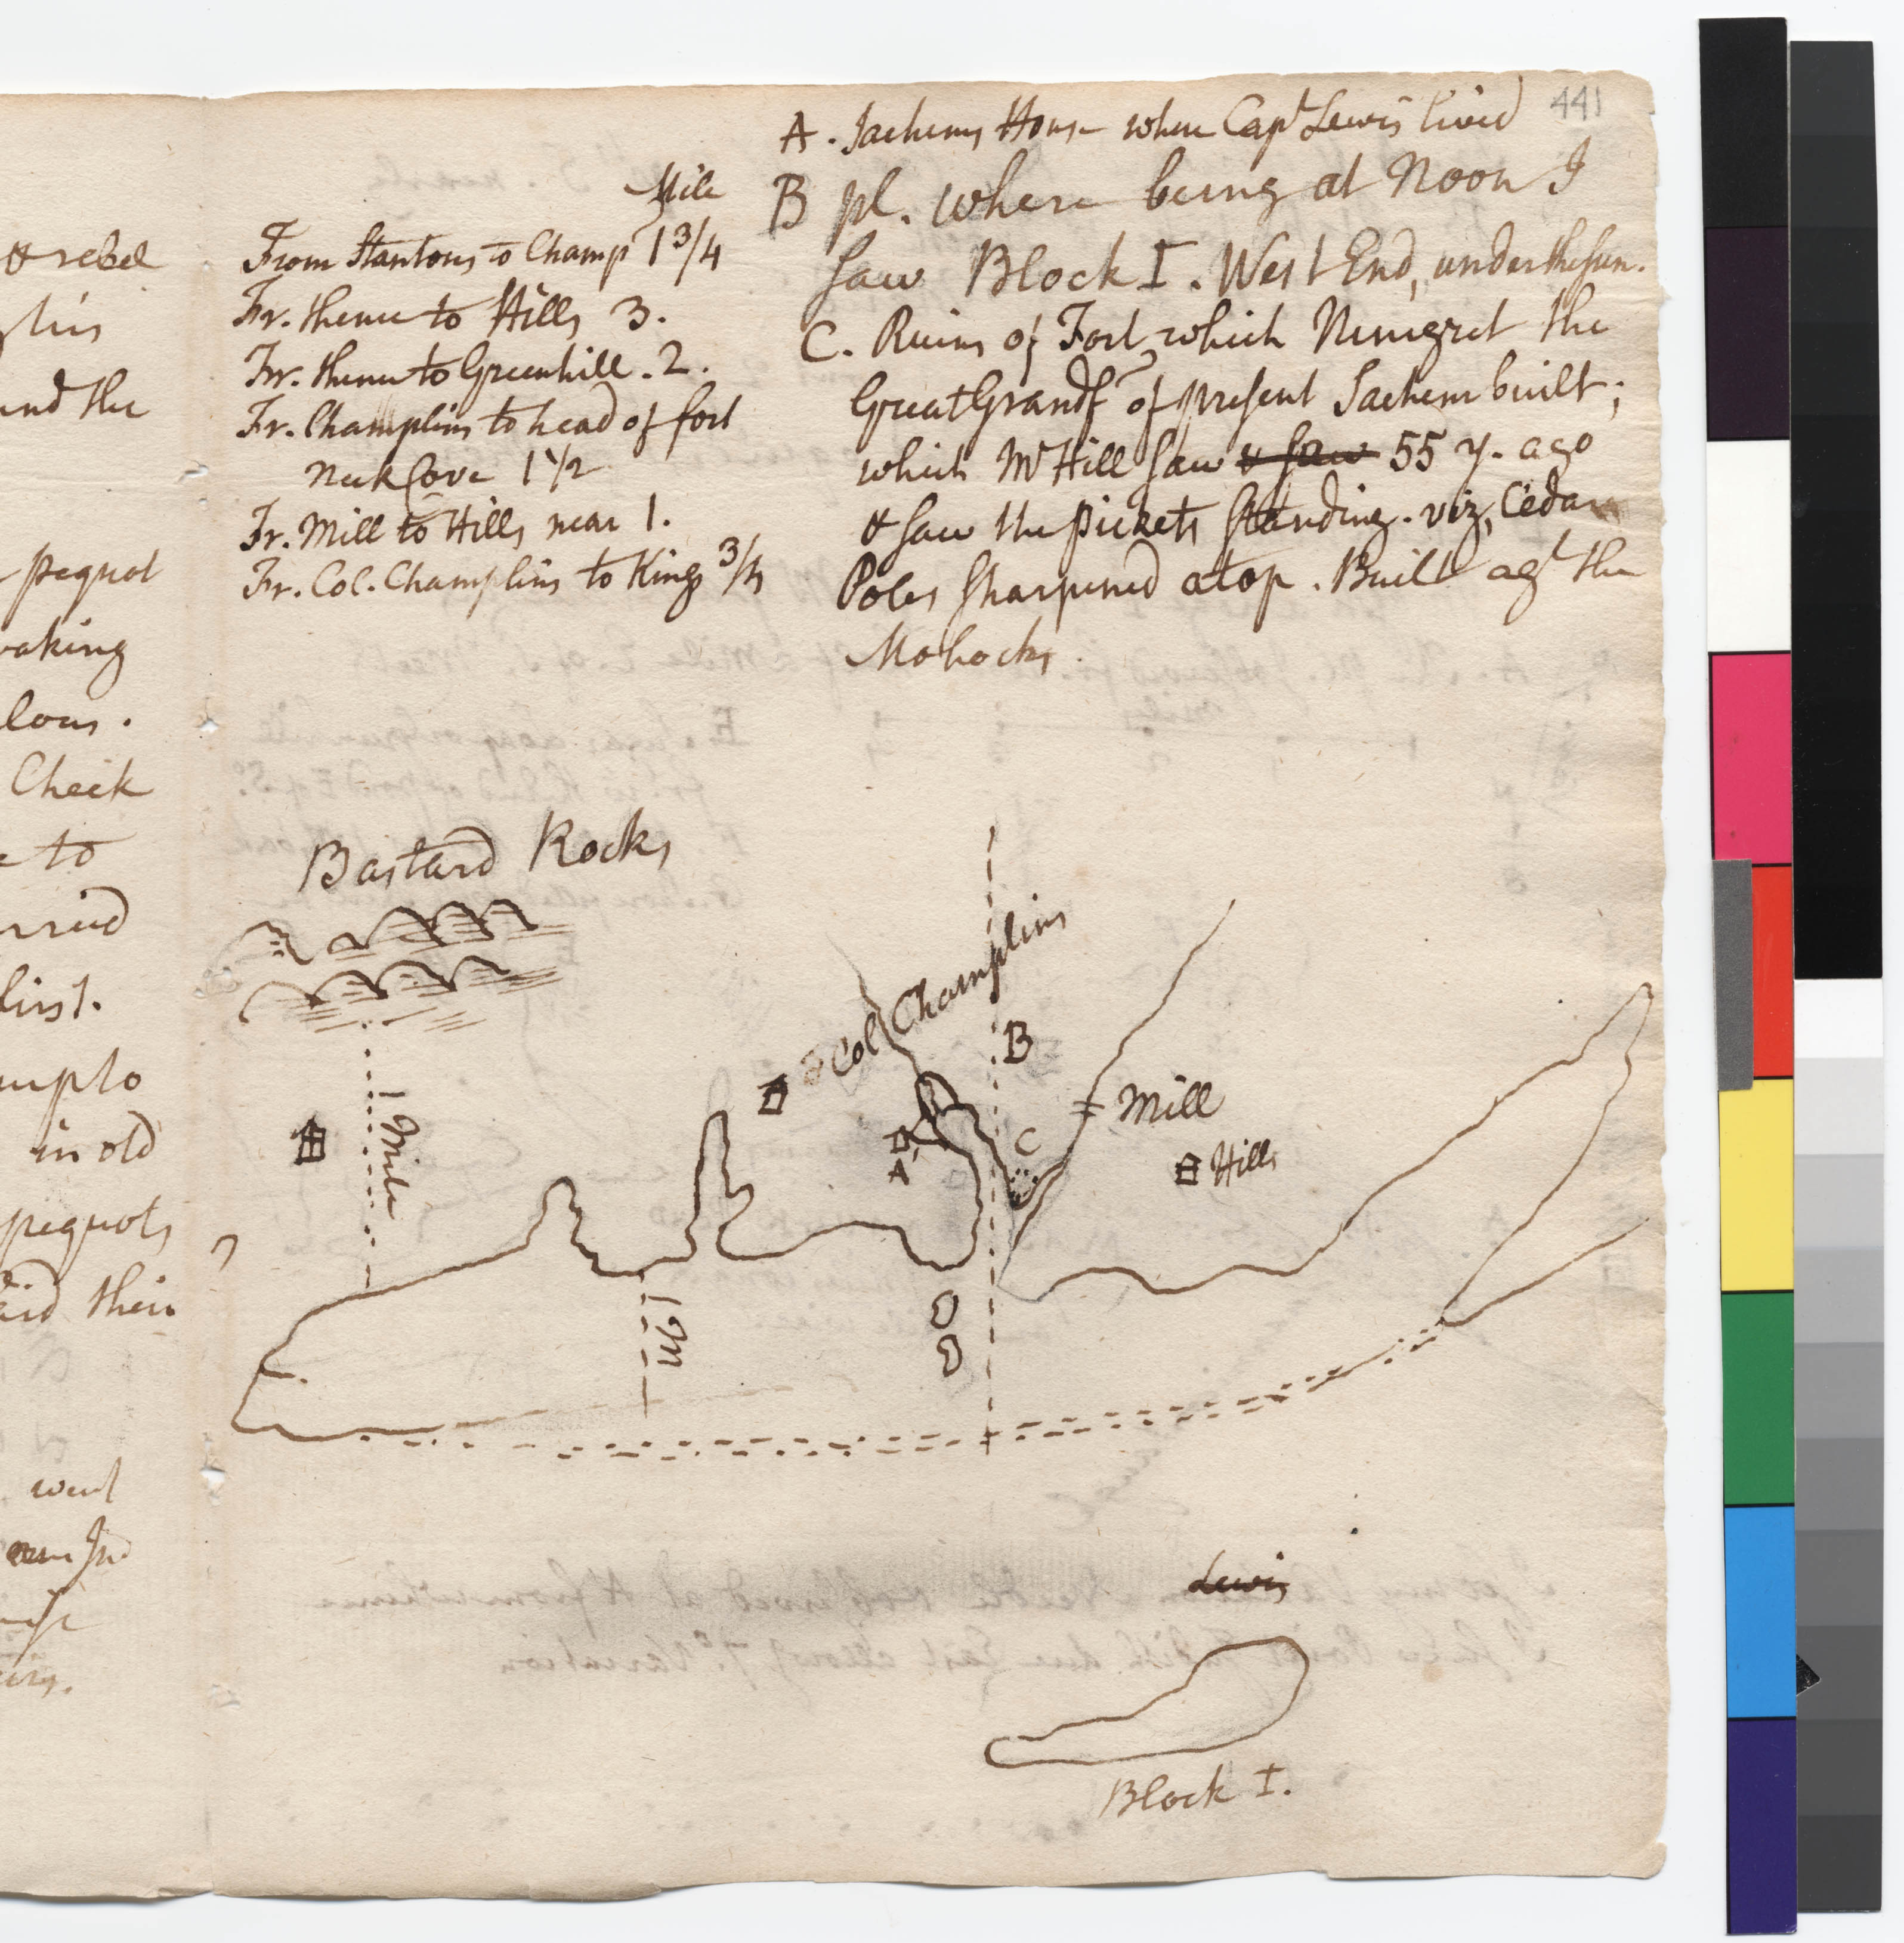 & rebel
his
and the
pequot
making
Check
to
first.
in old
pequots
their
went
441
Mile
From Stantons to Champ 1 3/4
Fr. thence to Hills 3.
Fr. thence to Greenhill. 2.
Fr. Champlins to head of fort
Neck Cove 1 1/2
Fr. Mill to Hills near 1.
Fr. Col. Champlins to Kings 3/4
A. Sachems House where Capt Lewis lived
B pl. where being at Noon I
saw Block I. West End, under the sun.
C. Ruins of Fort which Ninegret the
Great Grandfr of present Sachem built;
which Mr Hill saw & saw 55 y. ago
& saw the pickets standing. viz, Cedar
Poles sharpened atop. Built agt the
Mohocks.
Bastard Rocks
Col Champlins
B
1 Mile
Mill
C
Hills
A
1 m
Lewis
Block I.